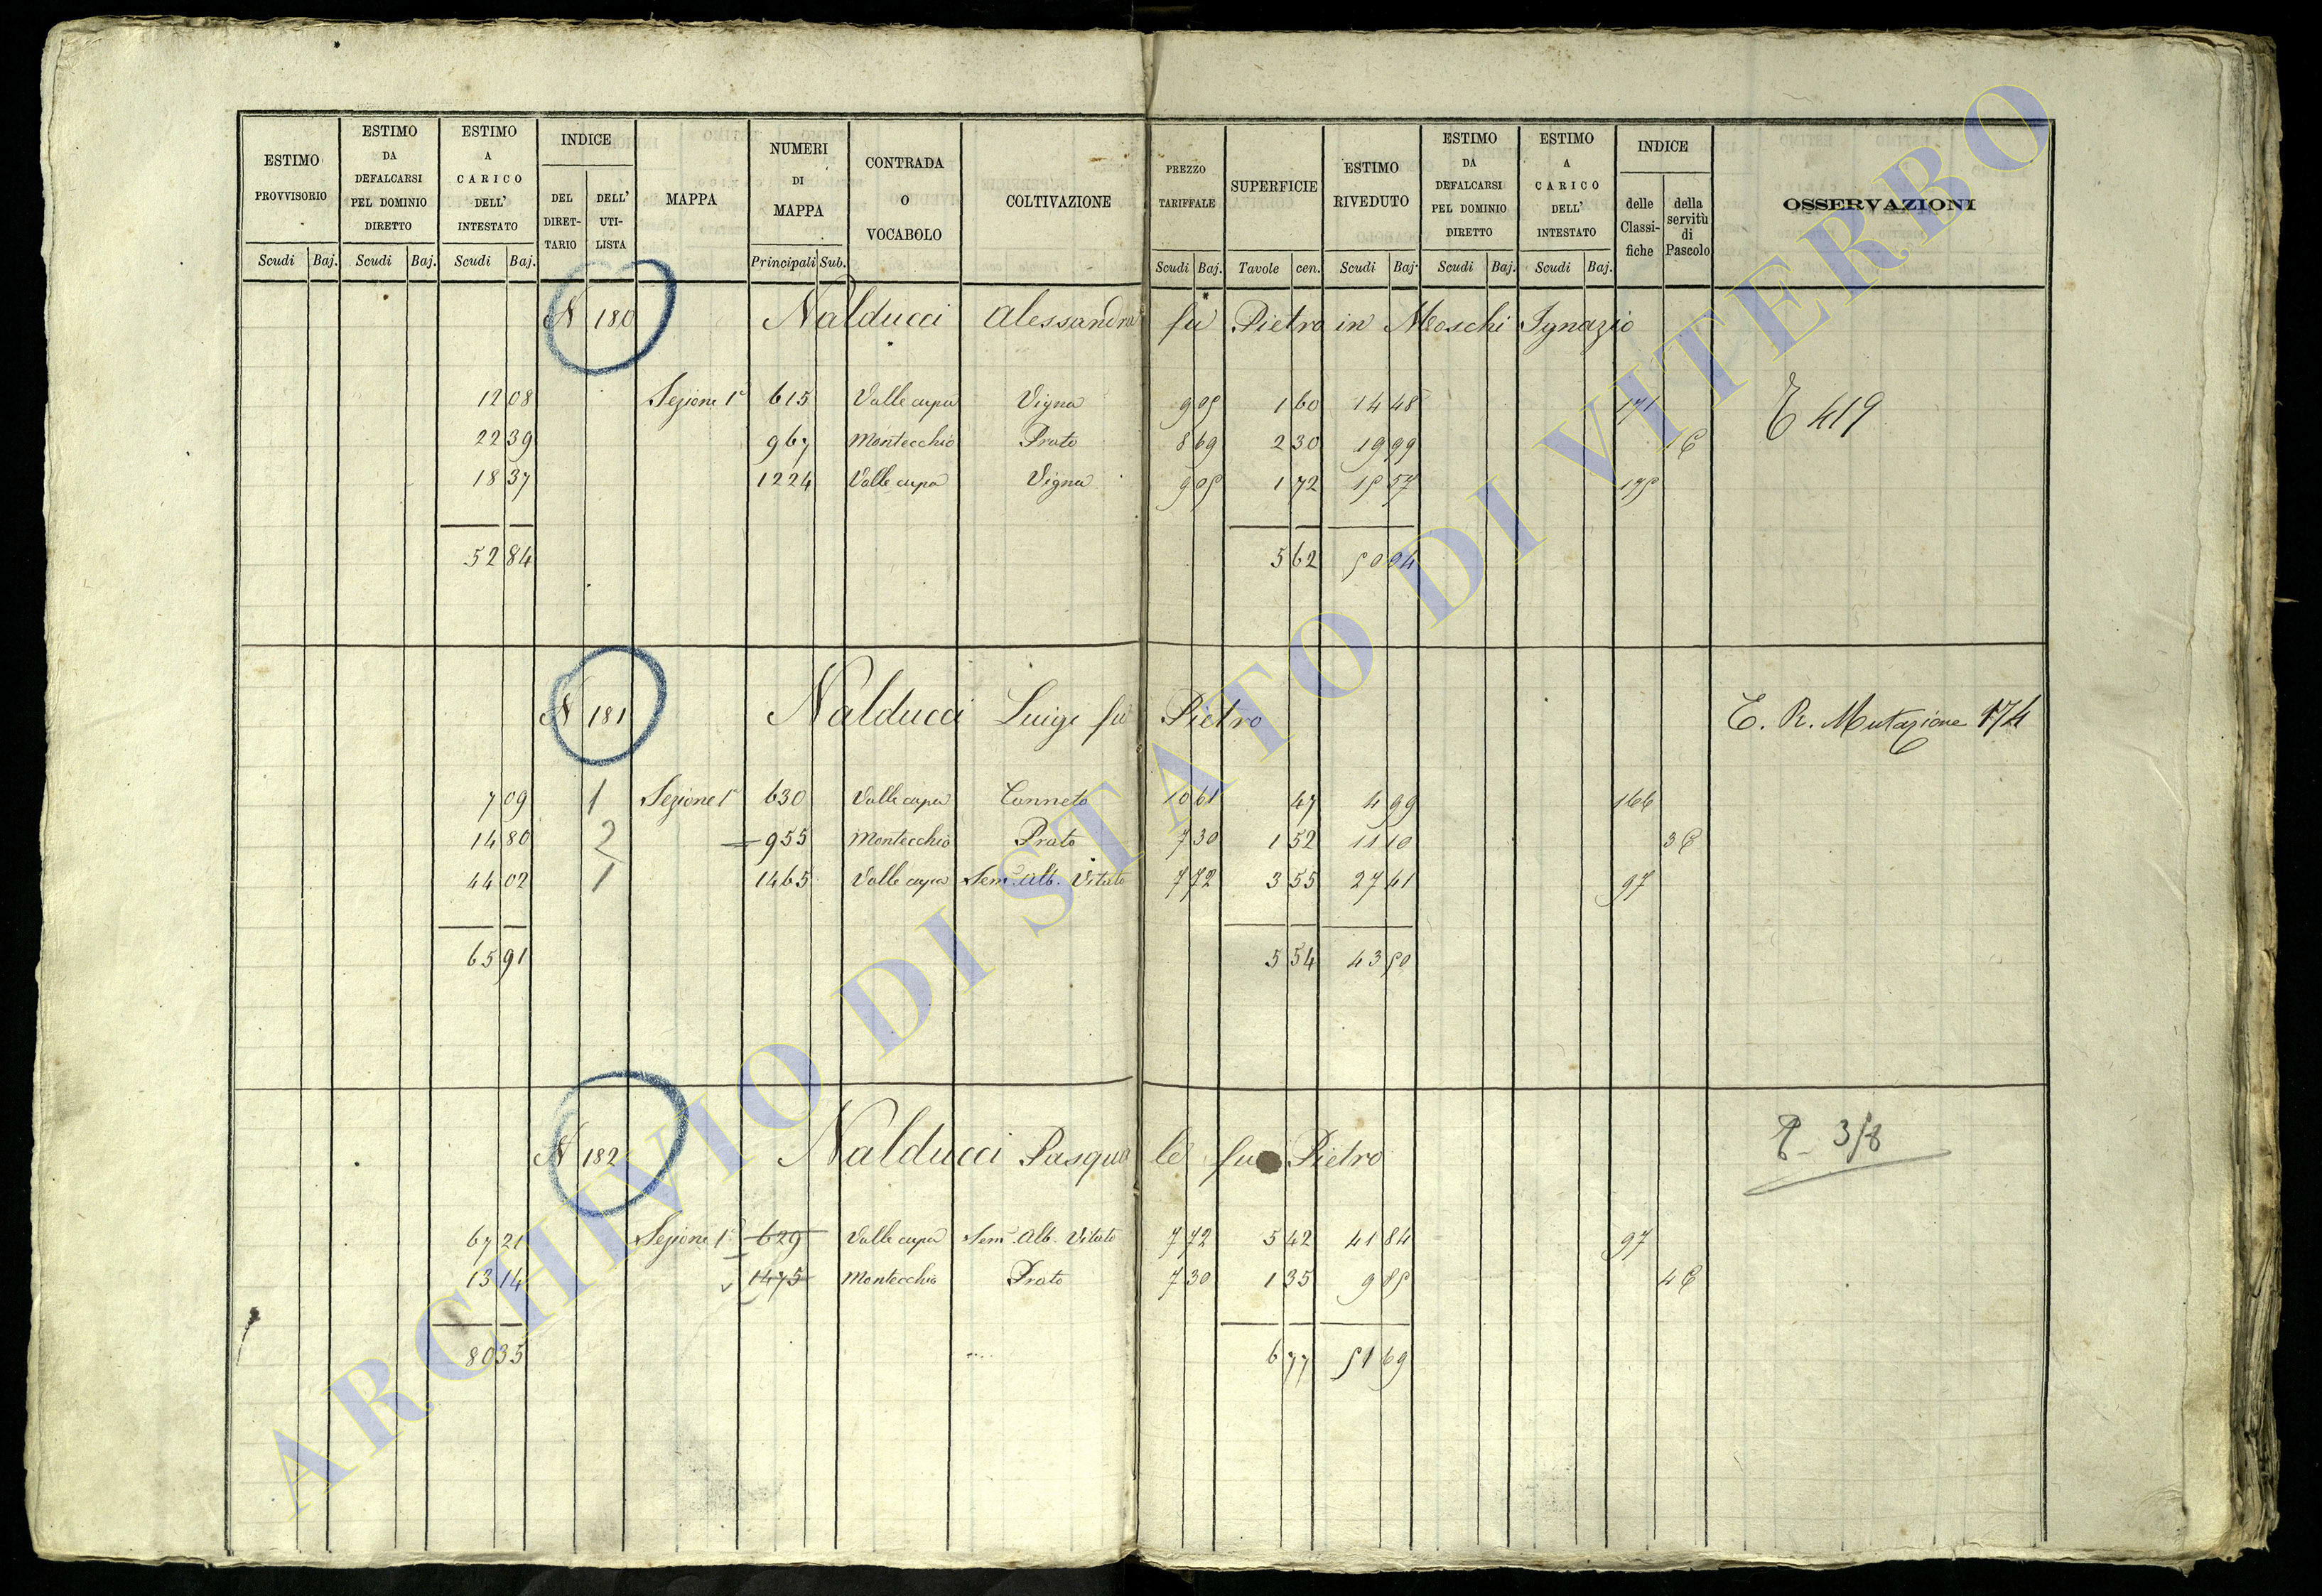 ESTIMO PROVVISORIO Scudi Baj.
ESTIMO DA DEFALCARSI PEL DOMINIO DIRETTO Scudi Baj.
ESTIMO A CARICO DELL' INTESTATO Scudi Baj.
INDICE DEL DIRET-TARIO DELL' UTI-LISTA
MAPPA
NUMERI DI MAPPA Principali Sub.
CONTRADA O VOCABOLO
COLTIVAZIONE
PREZZO TARIFFALE Scudi Baj.
SUPERFICIE Tavole cen.
ESTIMO RIVEDUTO Scudi Baj.
ESTIMO DA DEFALCARSI PEL DOMINIO DIRETTO Scudi Baj.
ESTIMO A CARICO DELL' INTESTATO Scudi Baj.
INDICE delle Classi-fiche della servitù di Pascolo
OSSERVAZIONI
N 180 Nalducci Alessandra fu Pietro in Moschi Ignazio
12 08 Sezione 1ª 615 Valle cupa Vigna 9 05 1 60 14 48 171 E 419
22 39 967 Montecchio Prato 8 69 2 30 19 99 1 C
18 37 1224 Valle cupa Vigna 9 05 1 72 15 57 175
52 84 5 62 50 04
N 181 Nalducci Luigi fu Pietro E. R. Mutazione 174
7 09 1 Sezione 1ª 630 Valle cupa Canneto 10 61 47 4 99 166
14 80 2 955 Montecchio Prato 7 30 1 52 11 10 3 C
44 02 1 1465 Valle cupa Sem. Alb. Vitato 7 72 3 55 27 41 97
65 91 5 54 43 50
N 182 Nalducci Pasquale fu Pietro
67 21 Sezione 1ª 629 Valle cupa Sem. Alb. Vitato 7 72 5 42 41 84 97
13 14 1475 Montecchio Prato 7 30 1 35 9 85 4 C
80 35 6 77 51 69
ARCHIVIO DI STATO DI VITERBO